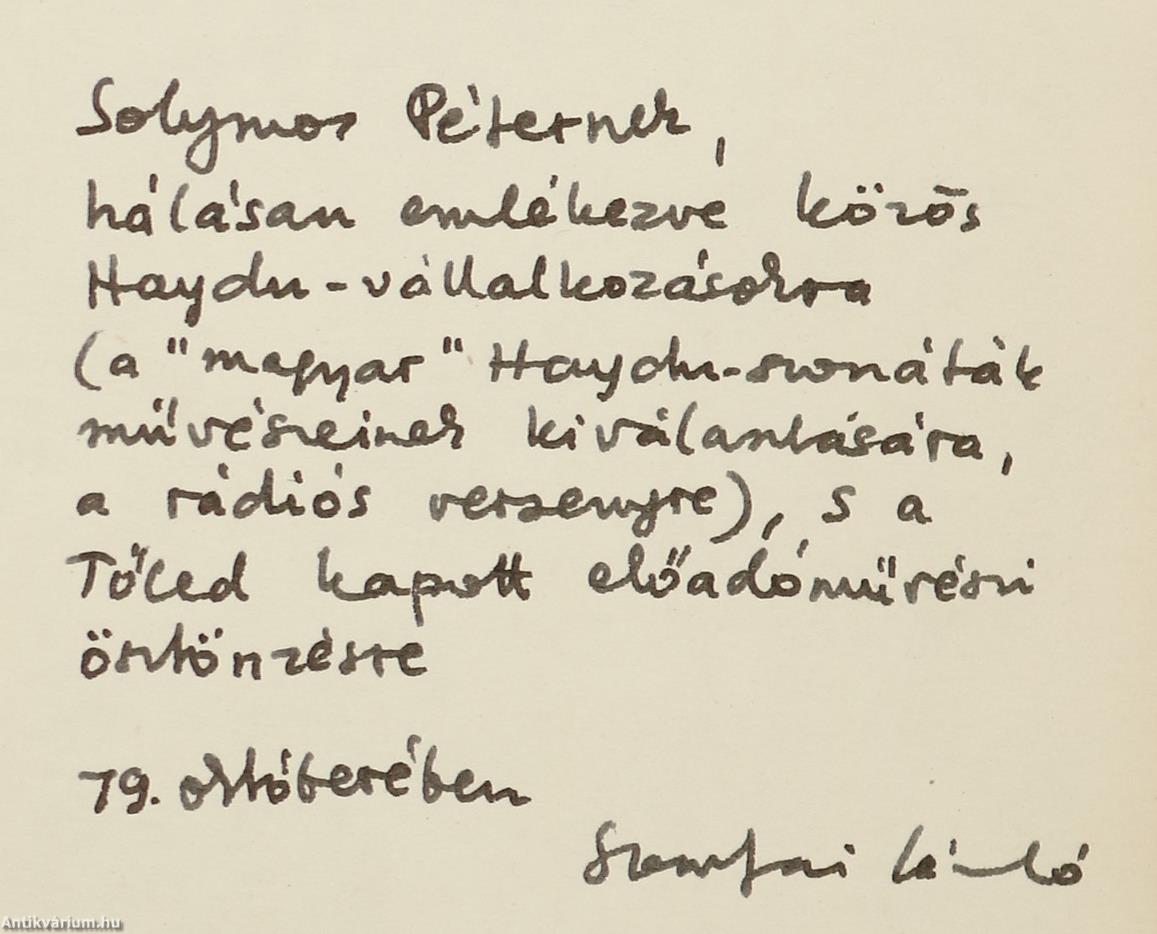 Solymos Péternek,
hálásan emlékezve közös
Haydn-vállalkozásokra
(a "magyar" Haydn-szonáták
művészeinek kiválasztására,
a rádiós versenyre), s a
Tőled kapott előadóművészi
ösztönzésre
79. októberében
Somfai László
Antikvárium.hu